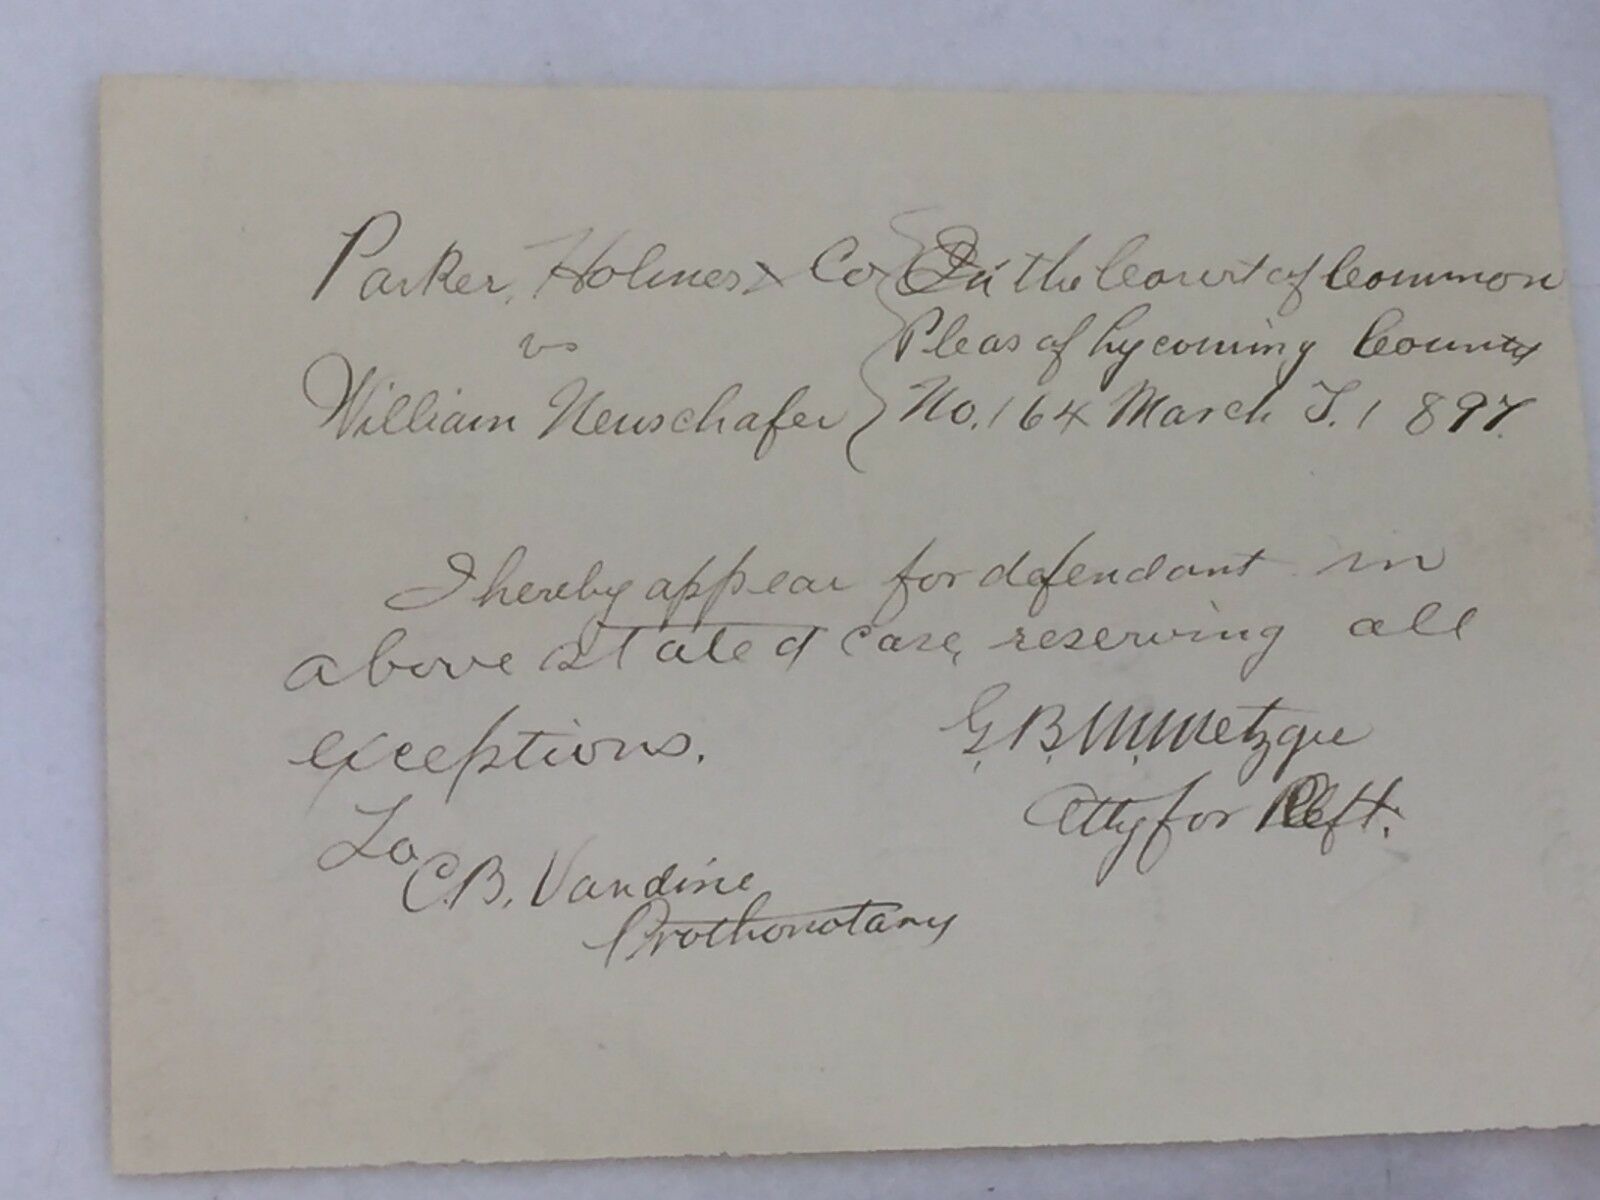 Parker, Holmes & Co
vs
William Neuschafer
In the Court of Common
Pleas of Lycoming County
No. 164 March T. 1897.
I hereby appear for defendant in
above stated case, reserving all
exceptions.
G. B. M. Metzger
Atty for Deft.
To
C.B. Vandine
Prothonotary